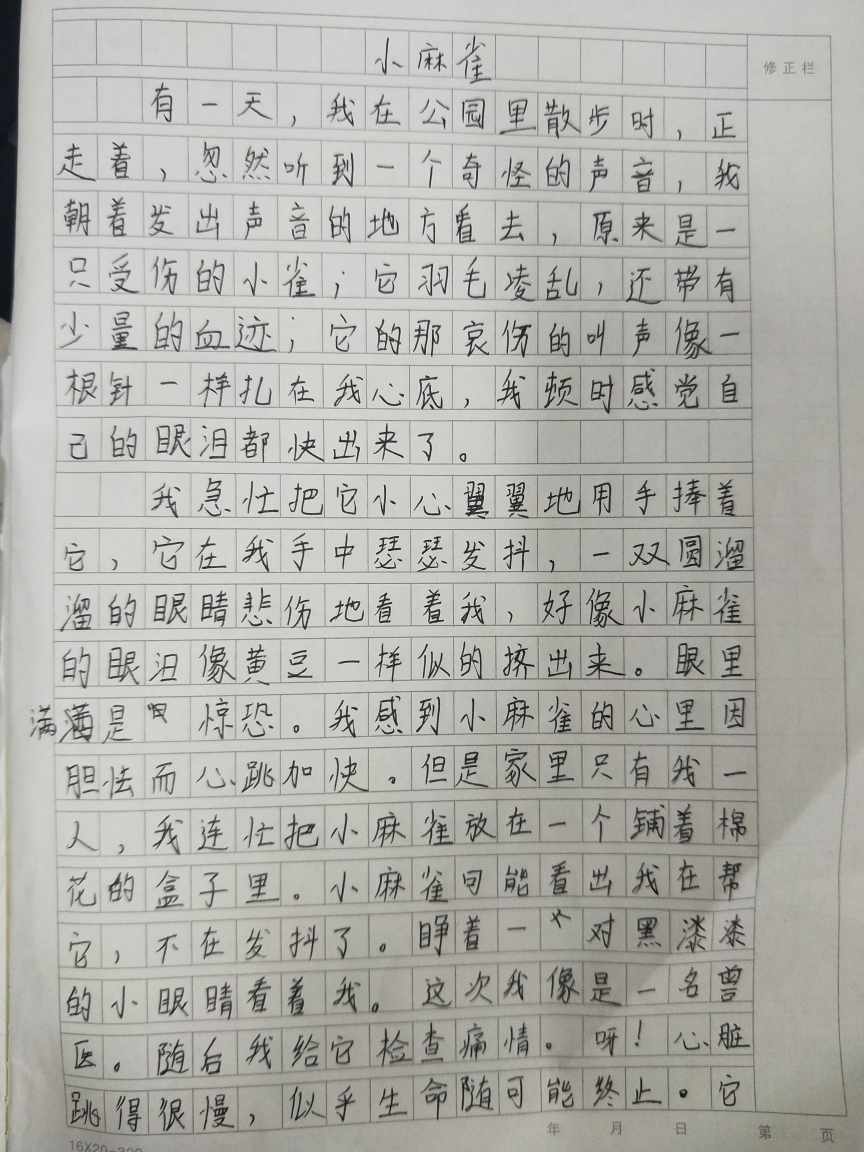 小麻雀
修正栏
有一天，我在公园里散步时，正
走着，忽然听到一个奇怪的声音，我
朝着发出声音的地方看去，原来是一
只受伤的小雀；它羽毛凌乱，还带有
少量的血迹；它的那哀伤的叫声像一
根针一样扎在我心底，我顿时感觉自
己的眼泪都快出来了。
我急忙把它小心翼翼地用手捧着
它，它在我手中瑟瑟发抖，一双圆溜
溜的眼睛悲伤地看着我，好像小麻雀
的眼泪像黄豆一样似的挤出来。眼里
满满是 惊恐。我感到小麻雀的心里因
胆怯而心跳加快。但是家里只有我一
人，我连忙把小麻雀放在一个铺着棉
花的盒子里。小麻雀可能看出我在帮
它，不在发抖了。睁着一 对黑漆漆
的小眼睛看着我。这次我像是一名兽
医。随后我给它检查痛情。呀！心脏
跳得很慢，似乎生命随可能终止。它
16X20=320
年 月 日 第 页